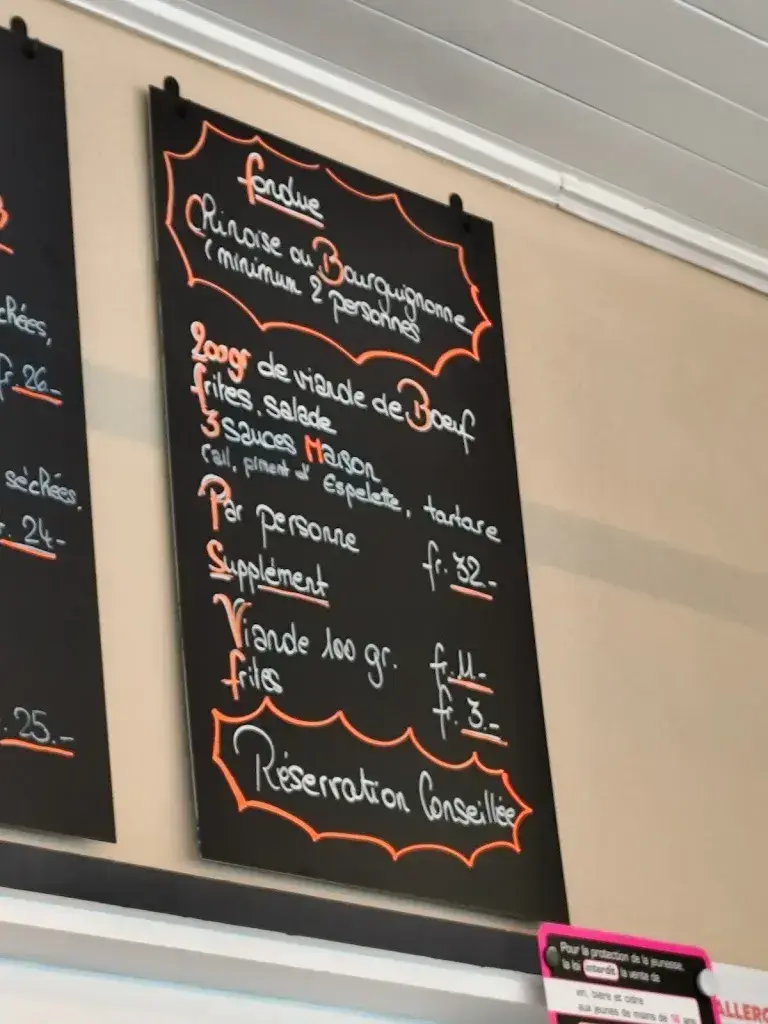 fondue
Chinoise ou Bourguignonne
(minimum 2 personnes
200gr de viande de Boeuf
frites, salade
3 sauces Maison
(ail, piment d'Espelette, tartare
Par personne fr. 32.-
Supplément
Viande 100 gr. fr. 11.-
frites fr. 3.-
Réservation Conseillée
chées,
fr. 26.-
séchées.
fr. 24.-
. 25.-
Pour la protection de la jeunesse,
la loi interdit la vente de
vin, bière et cidre
aux jeunes de moins de 16 ans
ALLERG